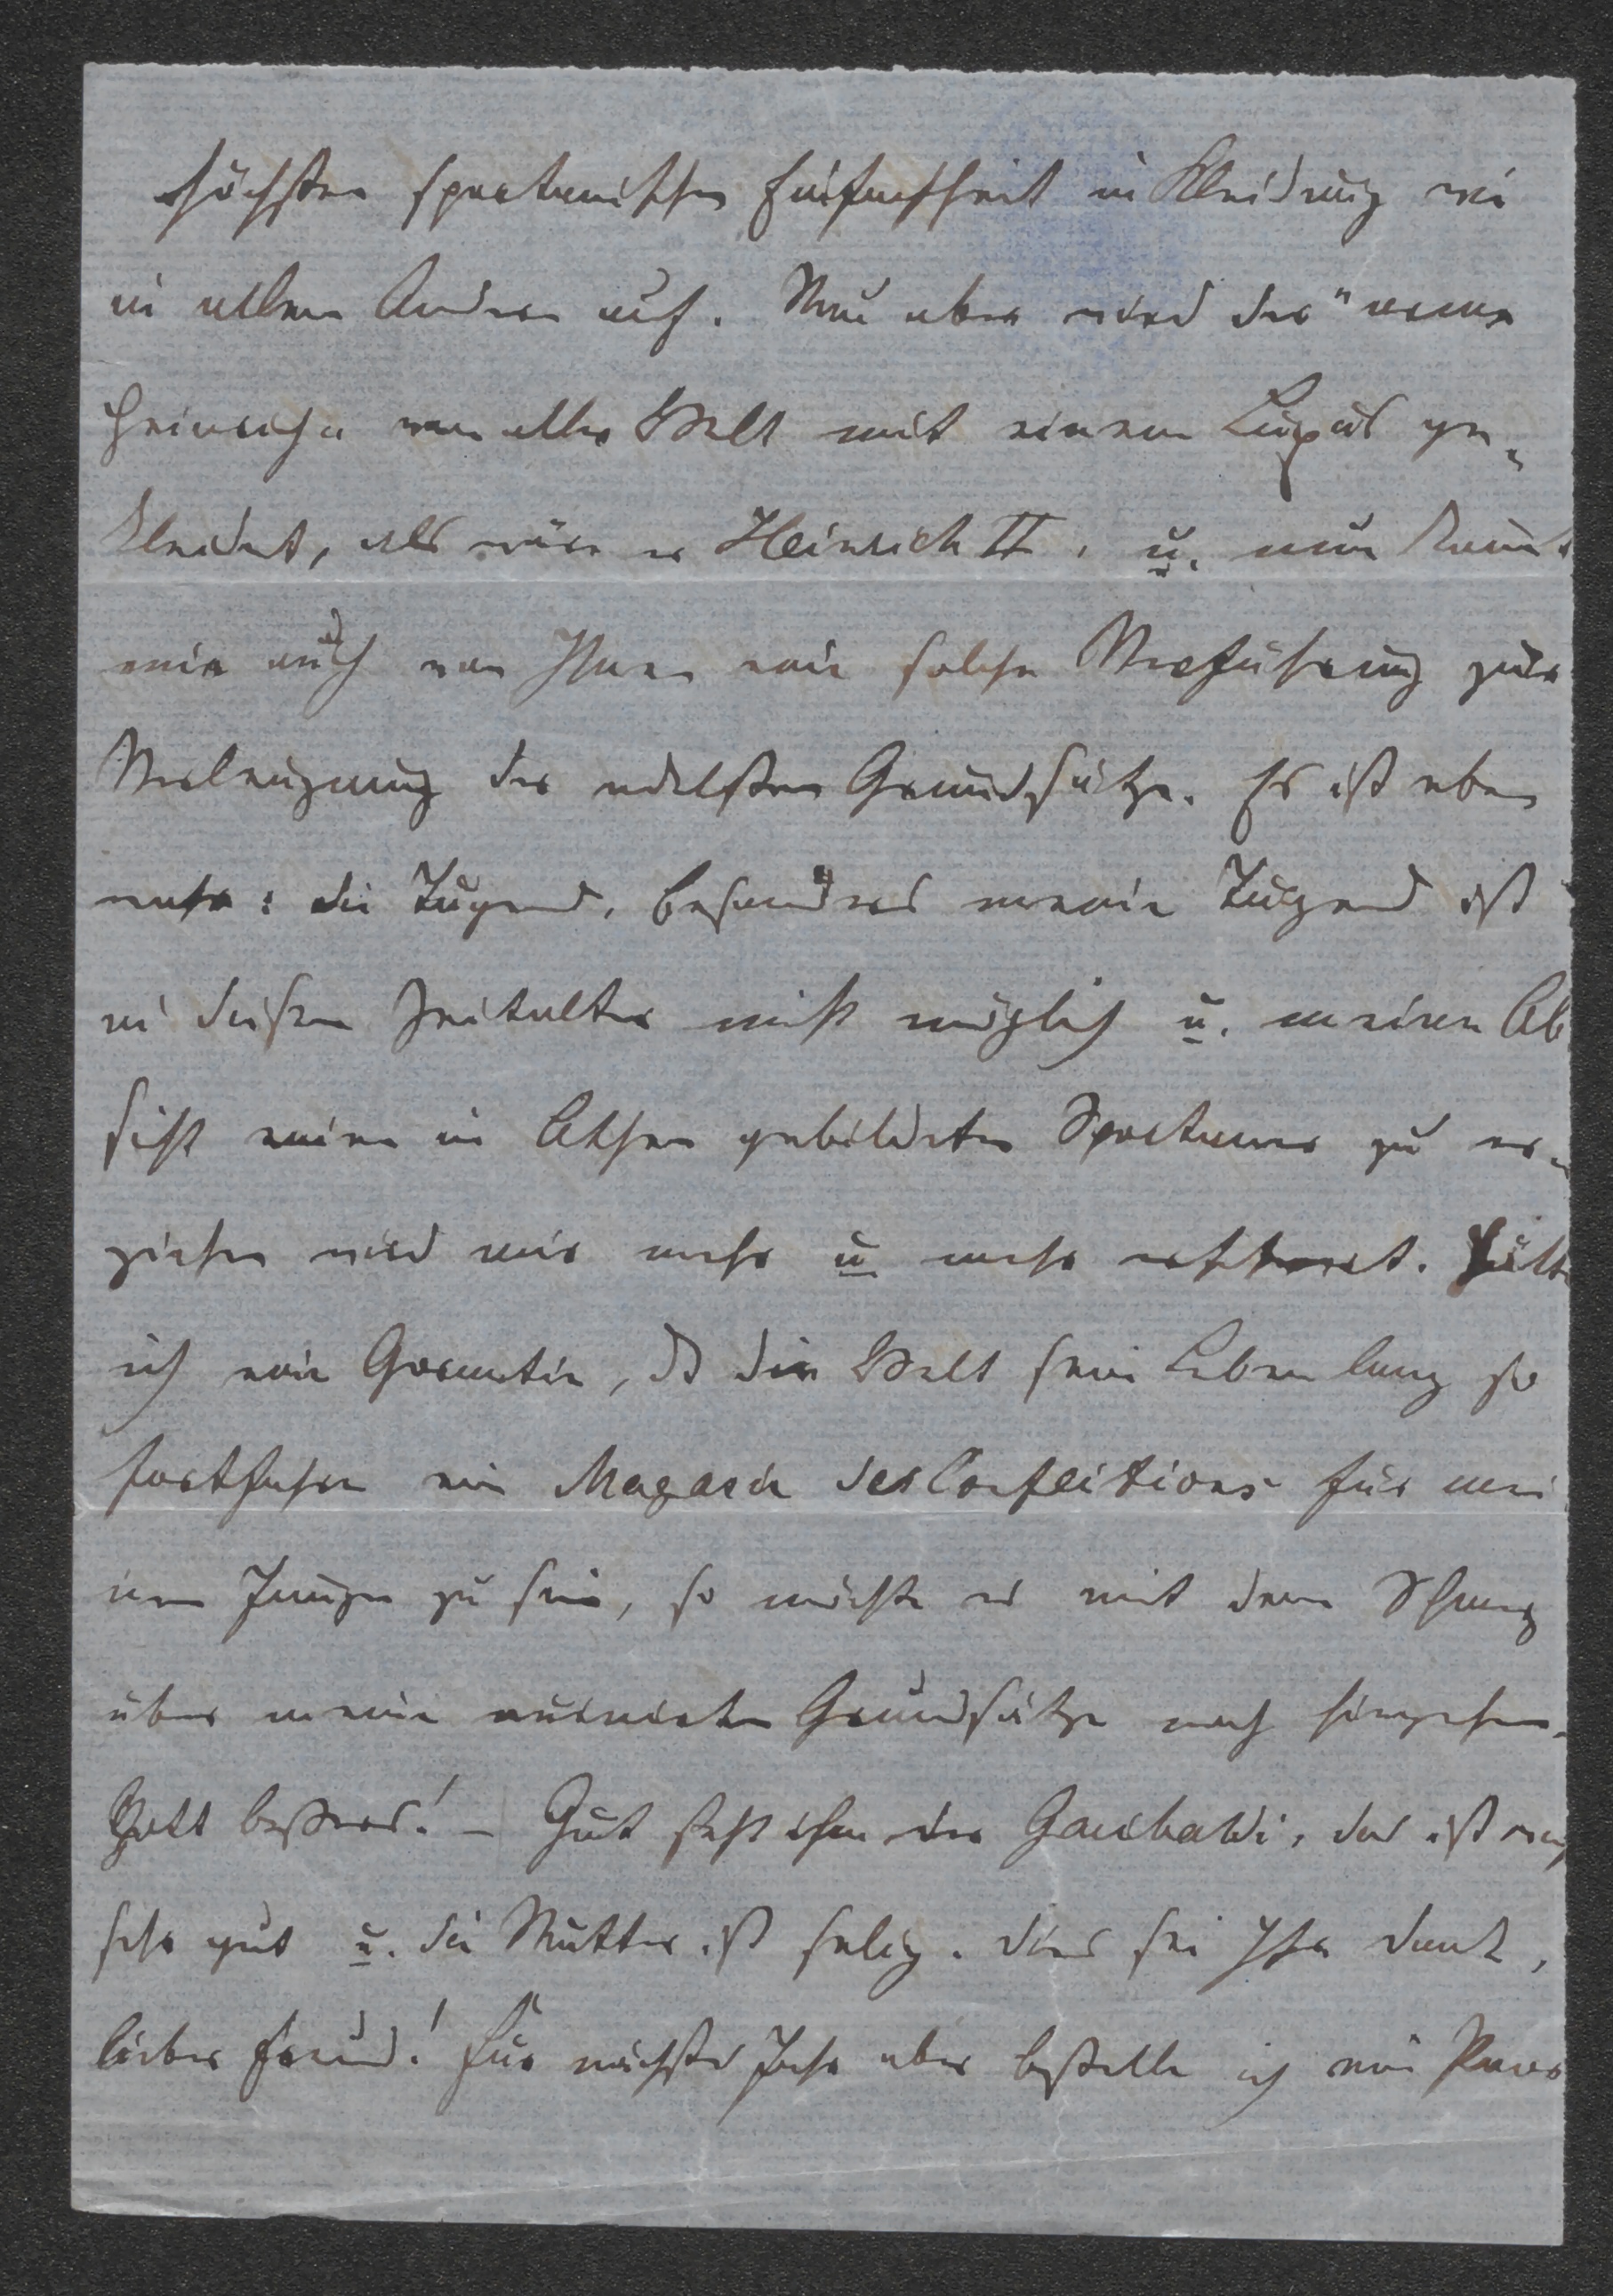 höchsten spartanischen Einfachheit in Kleidung wie
in allem Andern auf. Nun aber wird der "arme
Heinrich" von aller Welt mit einem Luxus ge-
kleidet, als wäre er Heinrich II. u. nun kommt
mir auch von Ihnen eine solche Verführung zur
Verleugnung der edelsten Grundsätze. Es ist eben
wahr: die Tugend, besonders meine Tugend ist
in diesem Zeitalter nicht möglich u. meine Ab
sicht einen in Athen gebildeten Spartaner zu er-
ziehen wird mir mehr u mehr erschwert. Hätte
ich eine Garantie, dß die Welt sein Leben lang so
fortfahre ein Magasin des Confections für mei
nen Jungen zu sein, so möchte es mit dem Schmerz
über meine ruinirten Grundsätze noch hingehen.
Gott beßers! – Gut steht ihm der Garibaldi, das ist wahr
sehr gut u. die Mutter ist selig. Dies sei Ihr Dank,
lieber Freund! Für nächstes Jahr aber bestelle ich ein Paar